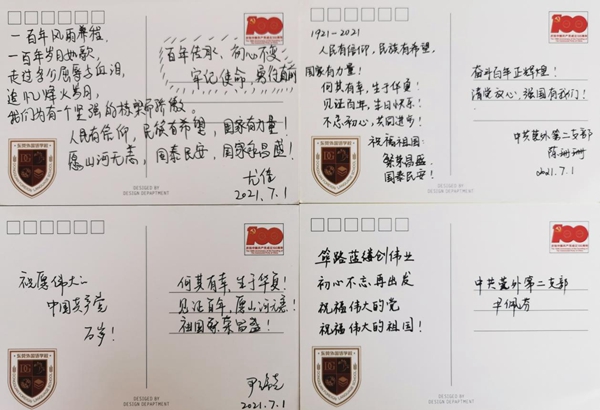 一百年风雨兼程,
一百年岁月如歌,
走过多少屈辱与血泪,
追忆烽火岁月,
我们为有个坚强的栋梁而骄傲
百年传承、初心不变
牢记使命,勇往直前
人民有信仰,民族有希望,国家有力量!
愿山河无恙,国泰民安,国家永昌盛!
尤佳
2021.7.1
DESIGNED BY
DESIGN DEPARTMENT
100
1921-2021
人民有信仰,民族有希望,
国家有力量!
何其有幸,生于华夏!
见证百年,生日快乐!
不忘初心,共同进步!
祝福祖国:
繁荣昌盛
国泰民安!
奋斗百年正辉煌!
请党放心,强国有我们!
中共党外第二支部
陈珊珊
2021.7.1
DESIGNED BY
DESIGN DEPARTMENT
100
祝愿伟大的
中国共产党
万岁!
何其有幸,生于华夏!
见证百年,愿山河无恙!
祖国繁荣昌盛!
2021.7.1
DESIGNED BY
DESIGN DEPARTMENT
100
筚路蓝缕创伟业
初心不忘再出发
祝福伟大的党
祝福伟大的祖国!
中共党外第二支部
尹佩芳
DESIGNED BY
DESIGN DEPARTMENT
100